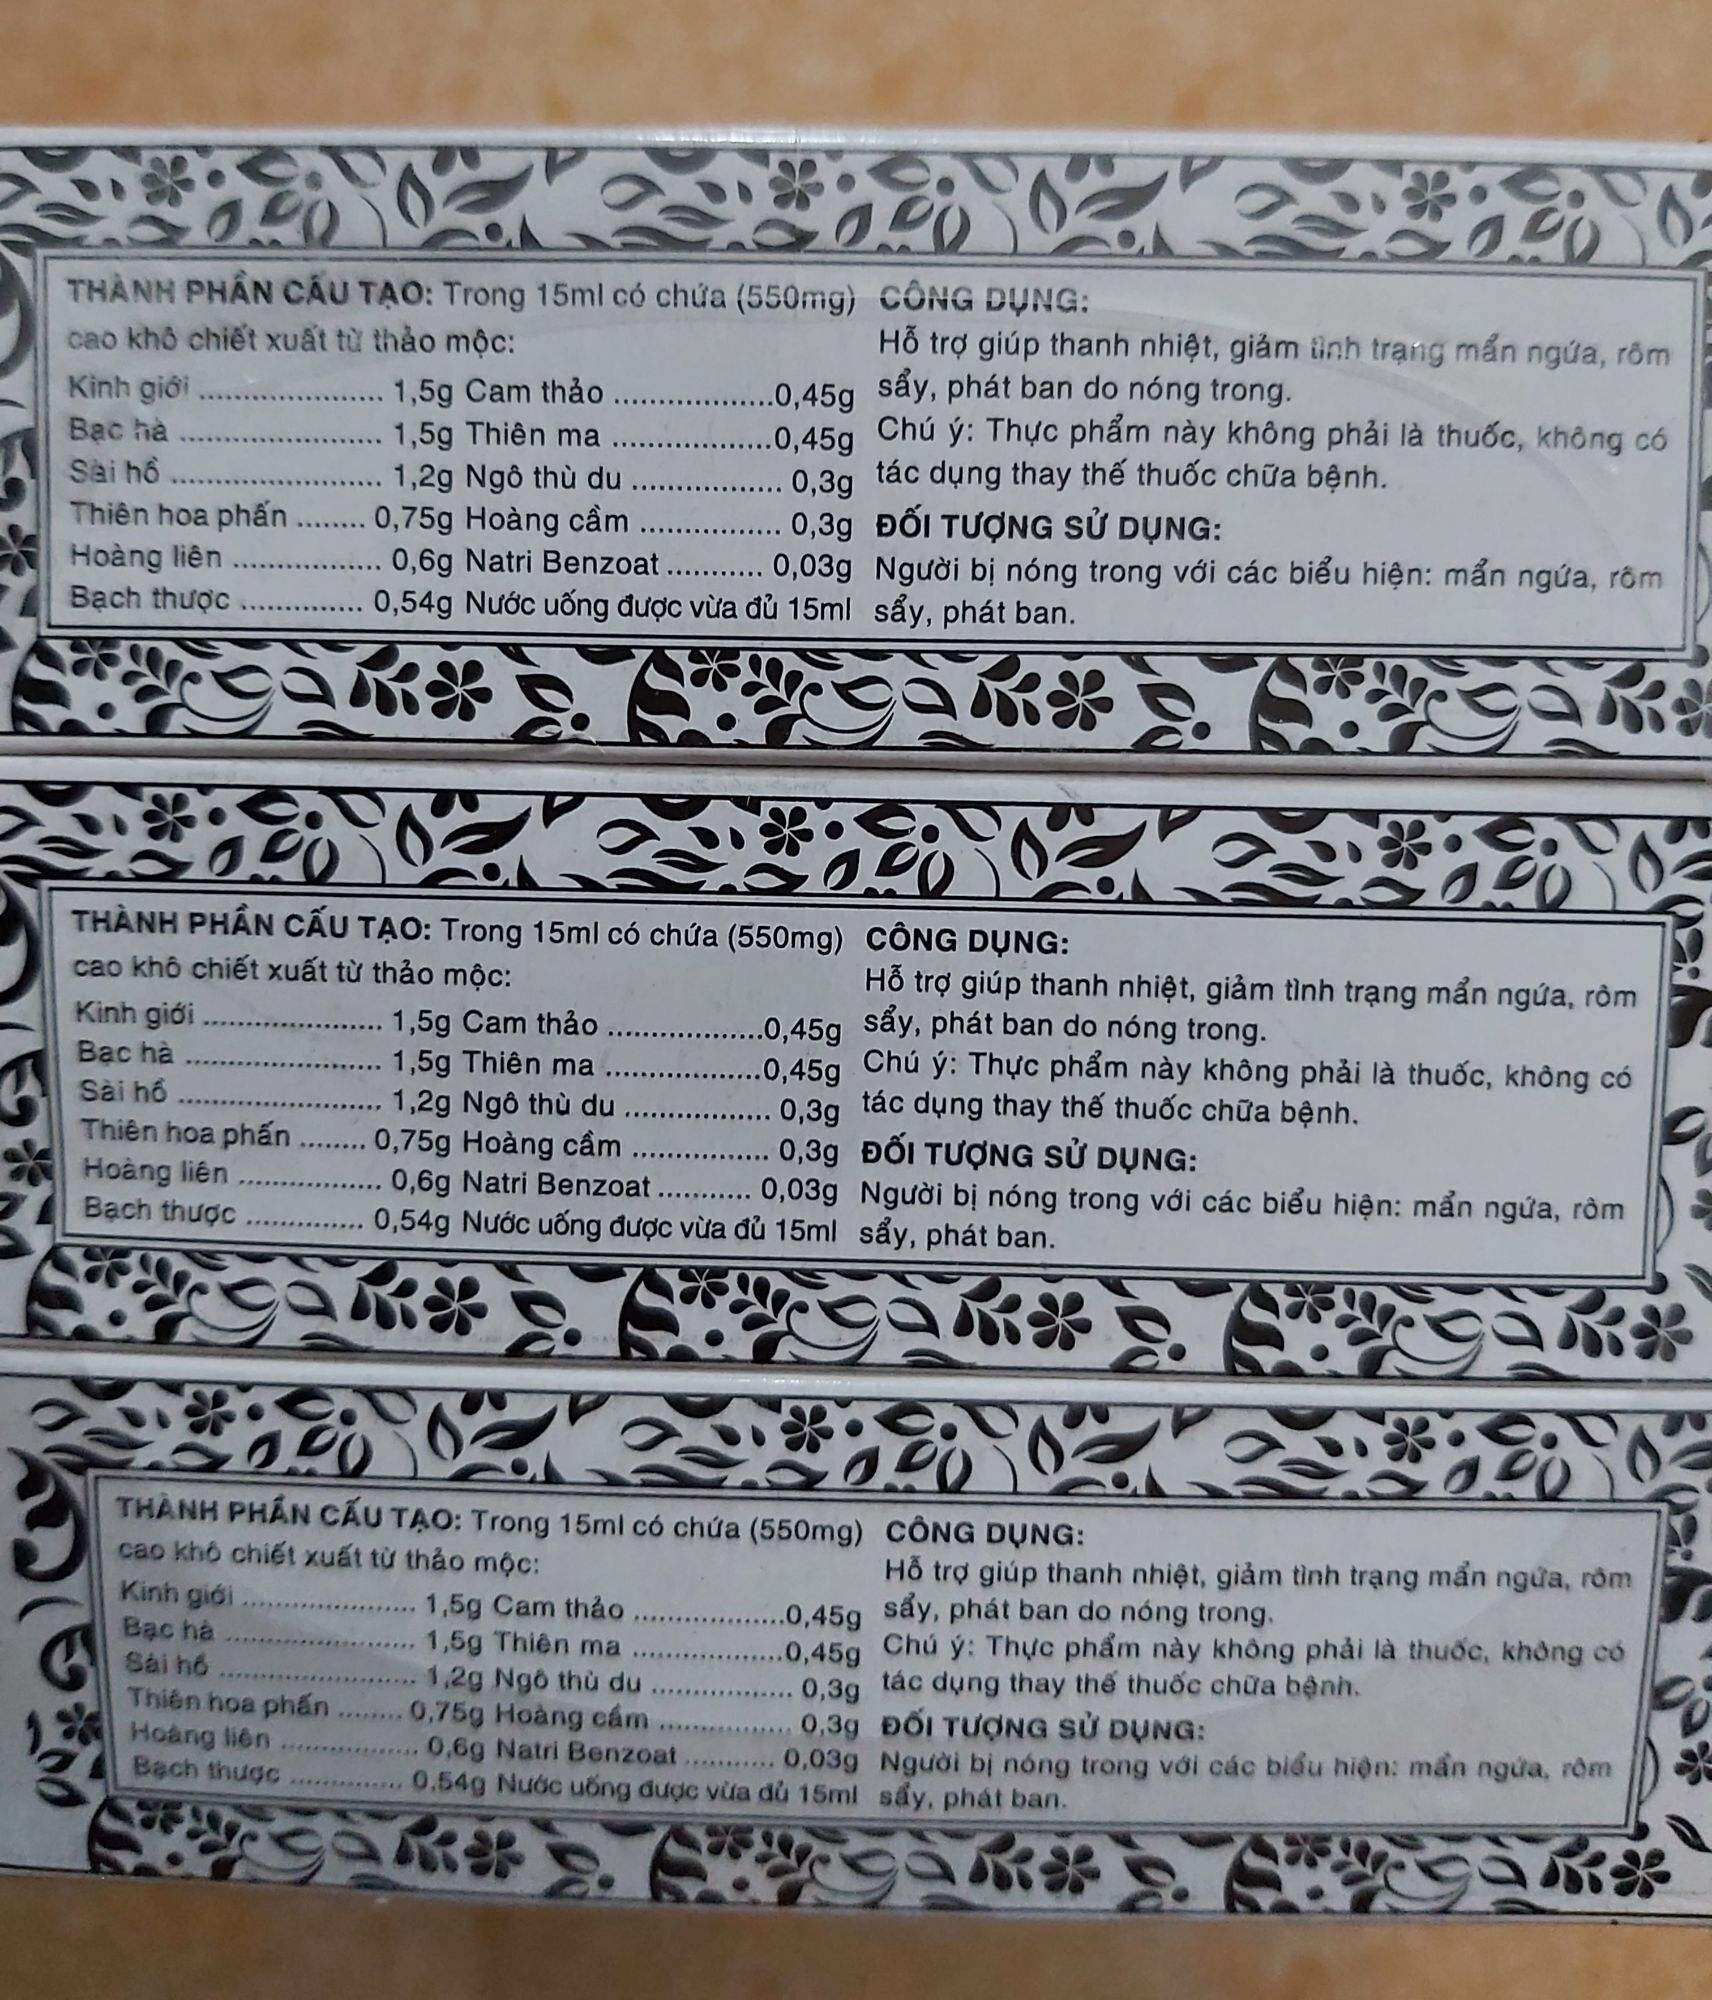 THÀNH PHẦN CẤU TẠO: Trong 15ml có chứa (550mg)
cao khô chiết xuất từ thảo mộc:
Kinh giới ..................... 1,5g Cam thảo ..................0,45g
Bạc hà ........................ 1,5g Thiên ma ..................0,45g
Sài hồ ......................... 1,2g Ngô thù du .................. 0,3g
Thiên hoa phấn ........ 0,75g Hoàng cầm ................. 0,3g
Hoàng liên ................. 0,6g Natri Benzoat ........... 0,03g
Bạch thược .............. 0,54g Nước uống được vừa đủ 15ml
CÔNG DỤNG:
Hỗ trợ giúp thanh nhiệt, giảm tình trạng mẩn ngứa, rôm
sẩy, phát ban do nóng trong.
Chú ý: Thực phẩm này không phải là thuốc, không có
tác dụng thay thế thuốc chữa bệnh.
ĐỐI TƯỢNG SỬ DỤNG:
Người bị nóng trong với các biểu hiện: mẩn ngứa, rôm
sẩy, phát ban.
THÀNH PHẦN CẤU TẠO: Trong 15ml có chứa (550mg)
cao khô chiết xuất từ thảo mộc:
Kinh giới ..................... 1,5g Cam thảo ..................0,45g
Bạc hà ........................ 1,5g Thiên ma ..................0,45g
Sài hồ ......................... 1,2g Ngô thù du .................. 0,3g
Thiên hoa phấn ........ 0,75g Hoàng cầm ................. 0,3g
Hoàng liên ................. 0,6g Natri Benzoat ........... 0,03g
Bạch thược .............. 0,54g Nước uống được vừa đủ 15ml
CÔNG DỤNG:
Hỗ trợ giúp thanh nhiệt, giảm tình trạng mẩn ngứa, rôm
sẩy, phát ban do nóng trong.
Chú ý: Thực phẩm này không phải là thuốc, không có
tác dụng thay thế thuốc chữa bệnh.
ĐỐI TƯỢNG SỬ DỤNG:
Người bị nóng trong với các biểu hiện: mẩn ngứa, rôm
sẩy, phát ban.
THÀNH PHẦN CẤU TẠO: Trong 15ml có chứa (550mg)
cao khô chiết xuất từ thảo mộc:
Kinh giới ..................... 1,5g Cam thảo ..................0,45g
Bạc hà ........................ 1,5g Thiên ma ..................0,45g
Sài hồ ......................... 1,2g Ngô thù du .................. 0,3g
Thiên hoa phấn ........ 0,75g Hoàng cầm ................. 0,3g
Hoàng liên ................. 0,6g Natri Benzoat ........... 0,03g
Bạch thược .............. 0,54g Nước uống được vừa đủ 15ml
CÔNG DỤNG:
Hỗ trợ giúp thanh nhiệt, giảm tình trạng mẩn ngứa, rôm
sẩy, phát ban do nóng trong.
Chú ý: Thực phẩm này không phải là thuốc, không có
tác dụng thay thế thuốc chữa bệnh.
ĐỐI TƯỢNG SỬ DỤNG:
Người bị nóng trong với các biểu hiện: mẩn ngứa, rôm
sẩy, phát ban.